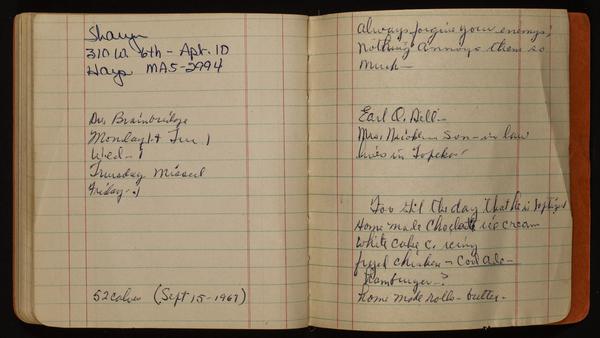 Sharyn
310 W. 6th - Apt. 1D
Hays MA5-2994
Dr. Brainbridge
Monday 1 + Tue 1
Wed - 1
Thursday Missed
Friday - 1
52 calves (Sept 15-1967)
Always forgive your enemys;
Nothing annoys them so
Much -
Earl O. Dell -
Mrs. son-in law
lives in Topeka
the day that he is
Home made Choclate ice cream
White cake c. icing
fryed chicken - Cool ade -
Hamburger - ?
home made rolls - butter -